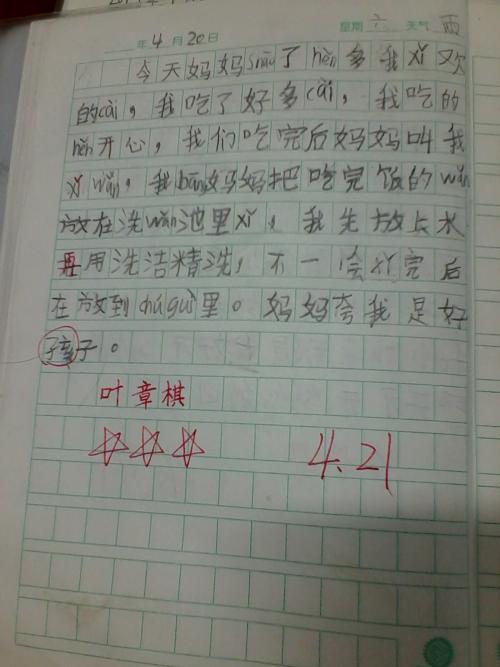 年4月20日 星期六 天气 雨
今天妈妈shāo了hěn多我xǐ欢
的cài，我吃了好多cài，我吃的
hěn开心，我们吃完后妈妈叫我
xǐ wǎn，我bāng妈妈把吃完饭的wǎn
放在洗wǎn池里xǐ，我先放上水
再用洗洁精洗，不一会xǐ完后
在放到chúguì里。妈妈夸我是好
孩子。
叶章棋
4.21